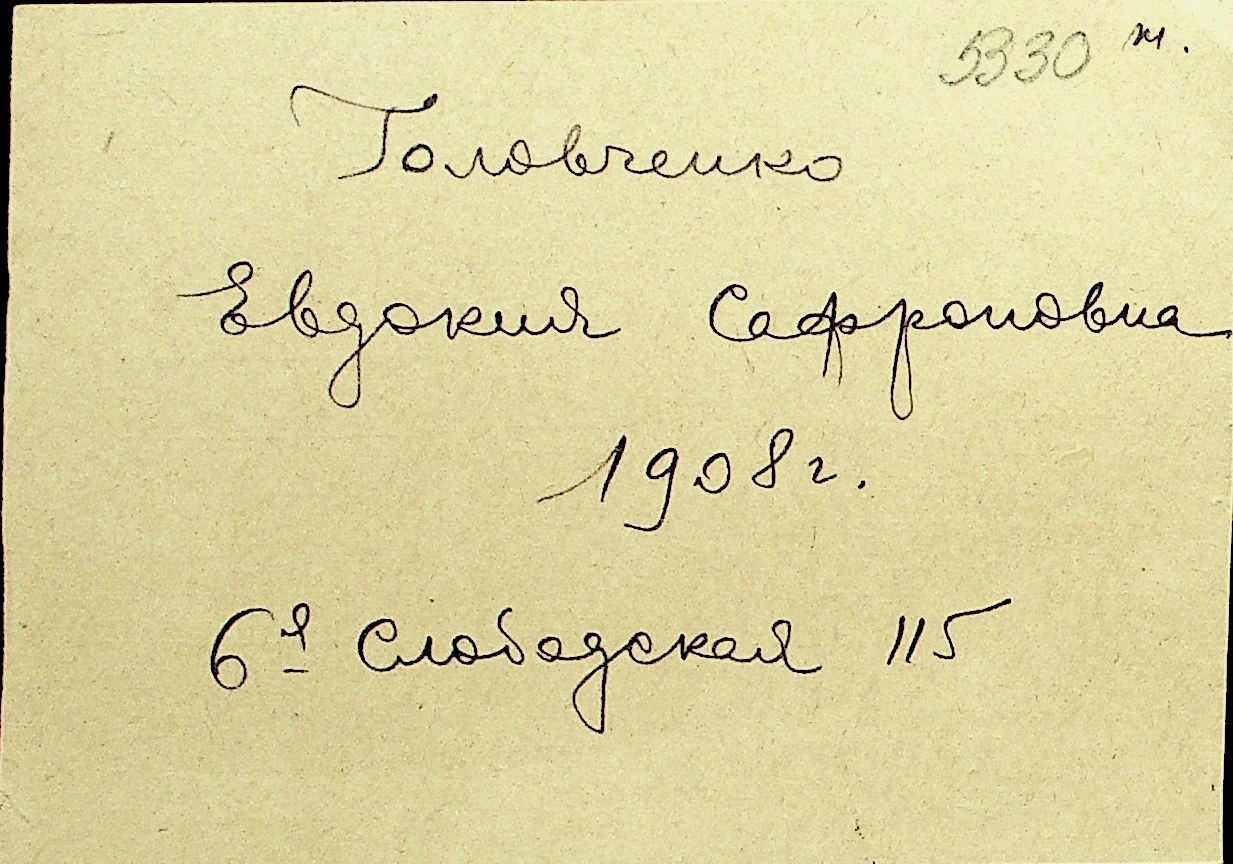 5330 т.
Головченко
Евдокия Сафроновна
1908 г.
6я Слободская 115